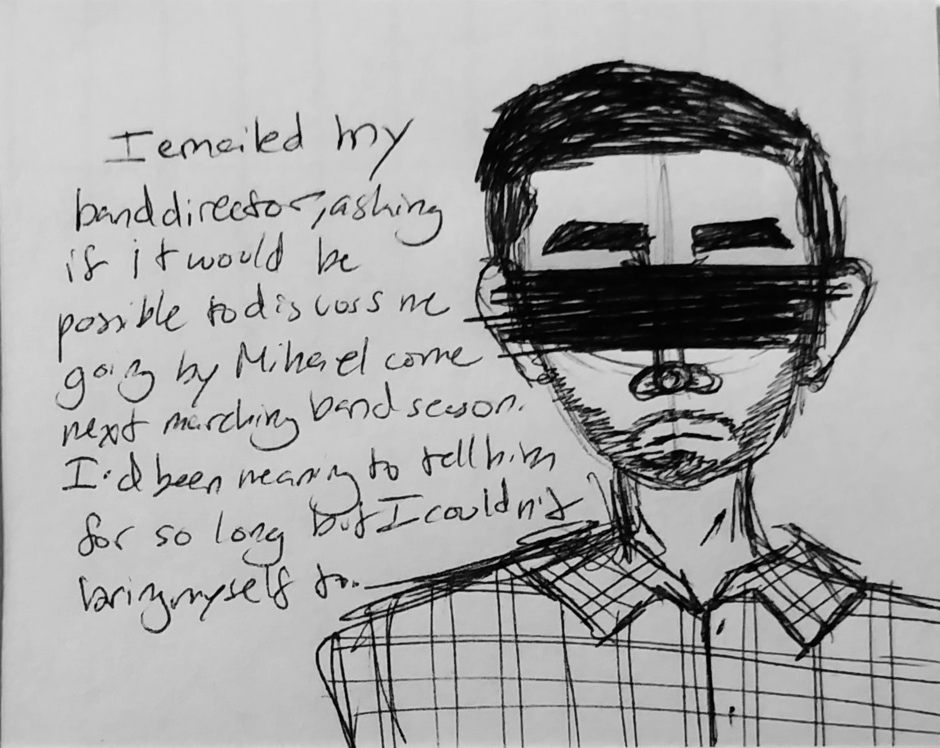 I emailed my
band director, asking
if it would be
possible to discuss me
going by Mihael come
next marching band season.
I'd been meaning to tell him
for so long but I couldn't
bring myself to.